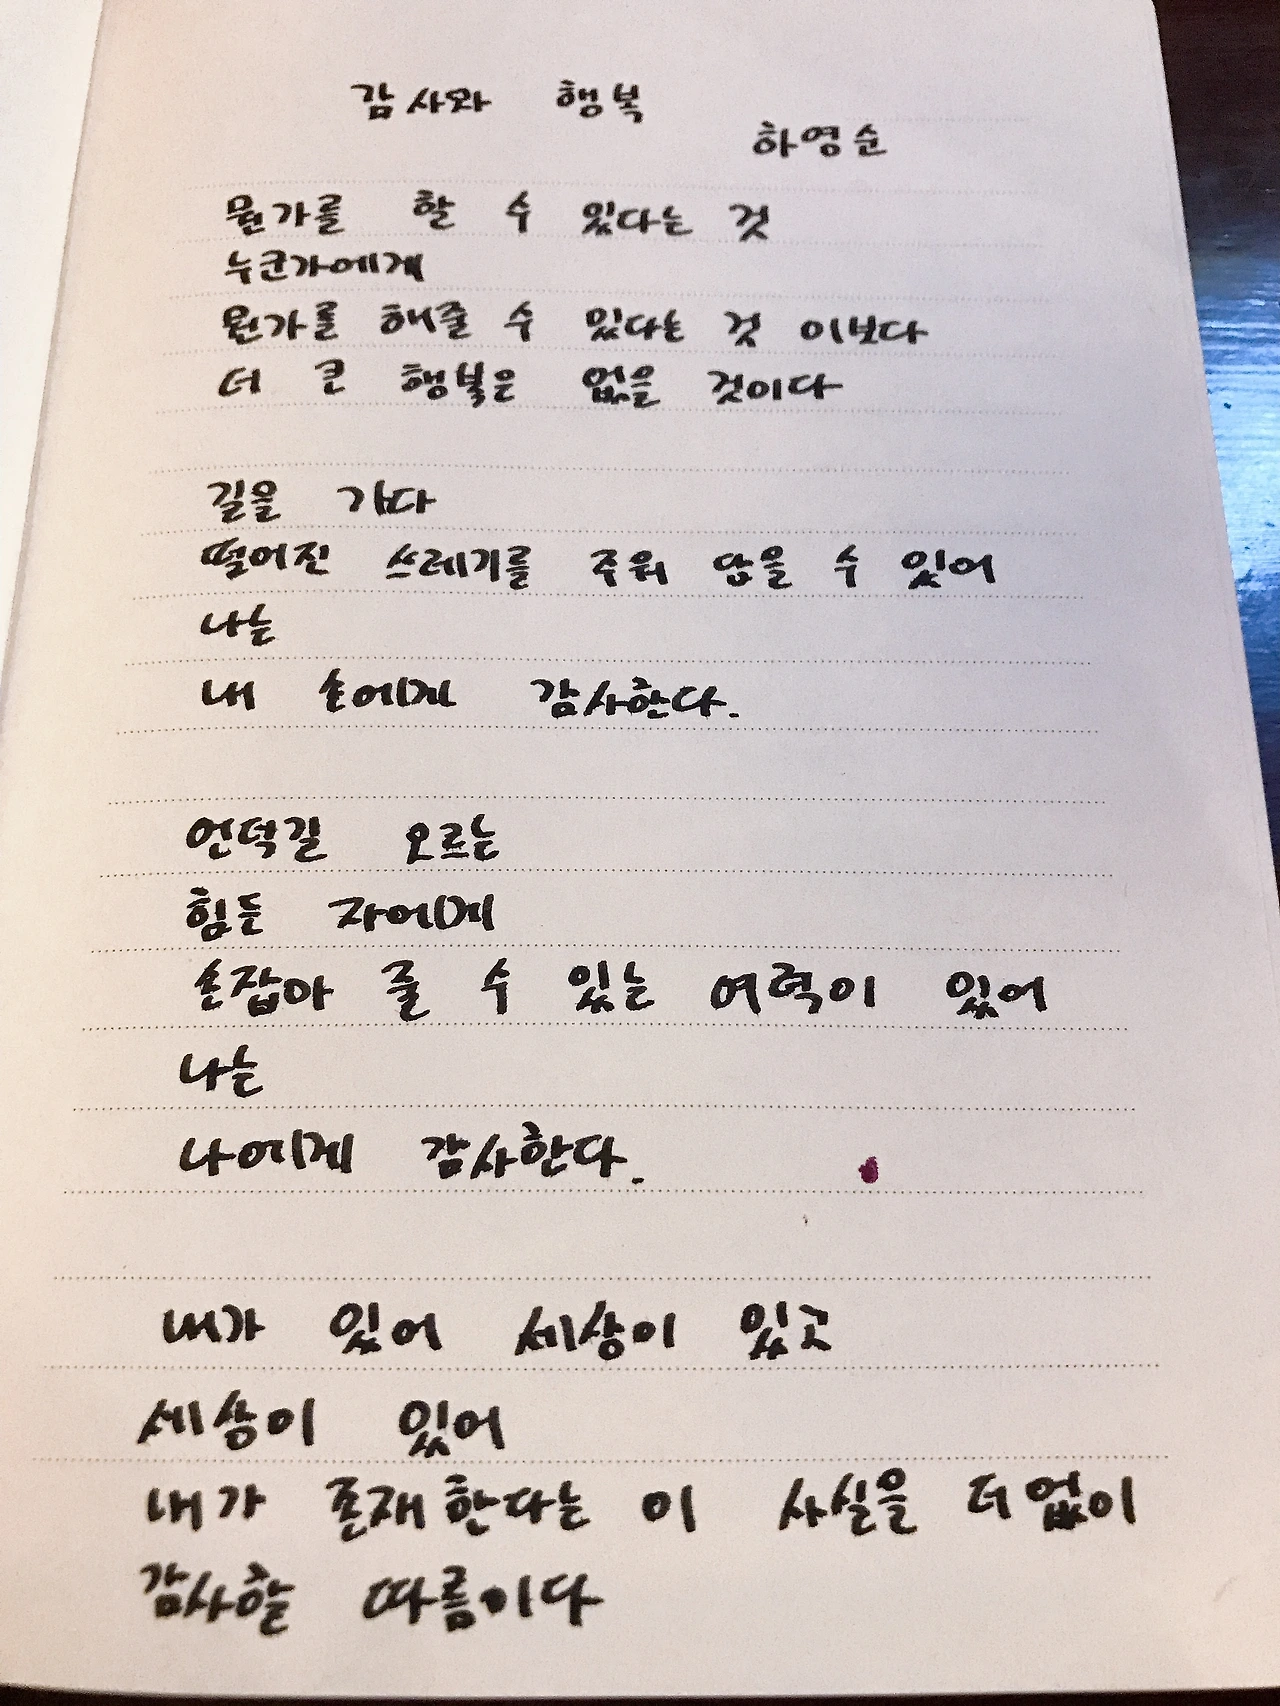 감사와 행복
하영순
뭔가를 할 수 있다는 것
누군가에게
뭔가를 해줄 수 있다는 것 이보다
더 큰 행복은 없을 것이다
길을 가다
떨어진 쓰레기를 주워 담을 수 있어
나는
내 손에게 감사한다.
언덕길 오르는
힘든 자에게
손잡아 줄 수 있는 여력이 있어
나는
나에게 감사한다.
내가 있어 세상이 있고
세상이 있어
내가 존재한다는 이 사실을 더없이
감사할 따름이다